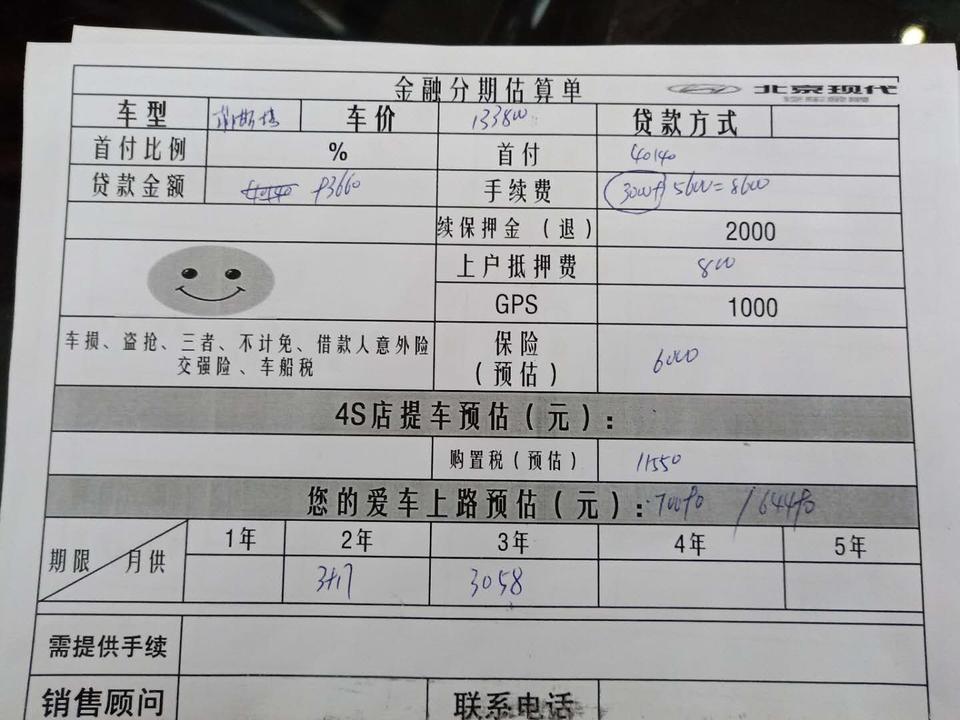 金融分期估算单 北京现代
车型 菲斯塔 车价 133800 贷款方式
首付比例 % 首付 40140
贷款金额 93660 手续费 3000+5600=8600
续保押金（退） 2000
上户抵押费 800
GPS 1000
车损、盗抢、三者、不计免、借款人意外险
交强险、车船税
保险
（预估） 6000
4S店提车预估（元）：
购置税（预估） 11550
您的爱车上路预估（元）： 70090 / 64490
期限 月供 1年 2年 3年 4年 5年
3058
需提供手续
销售顾问 联系电话